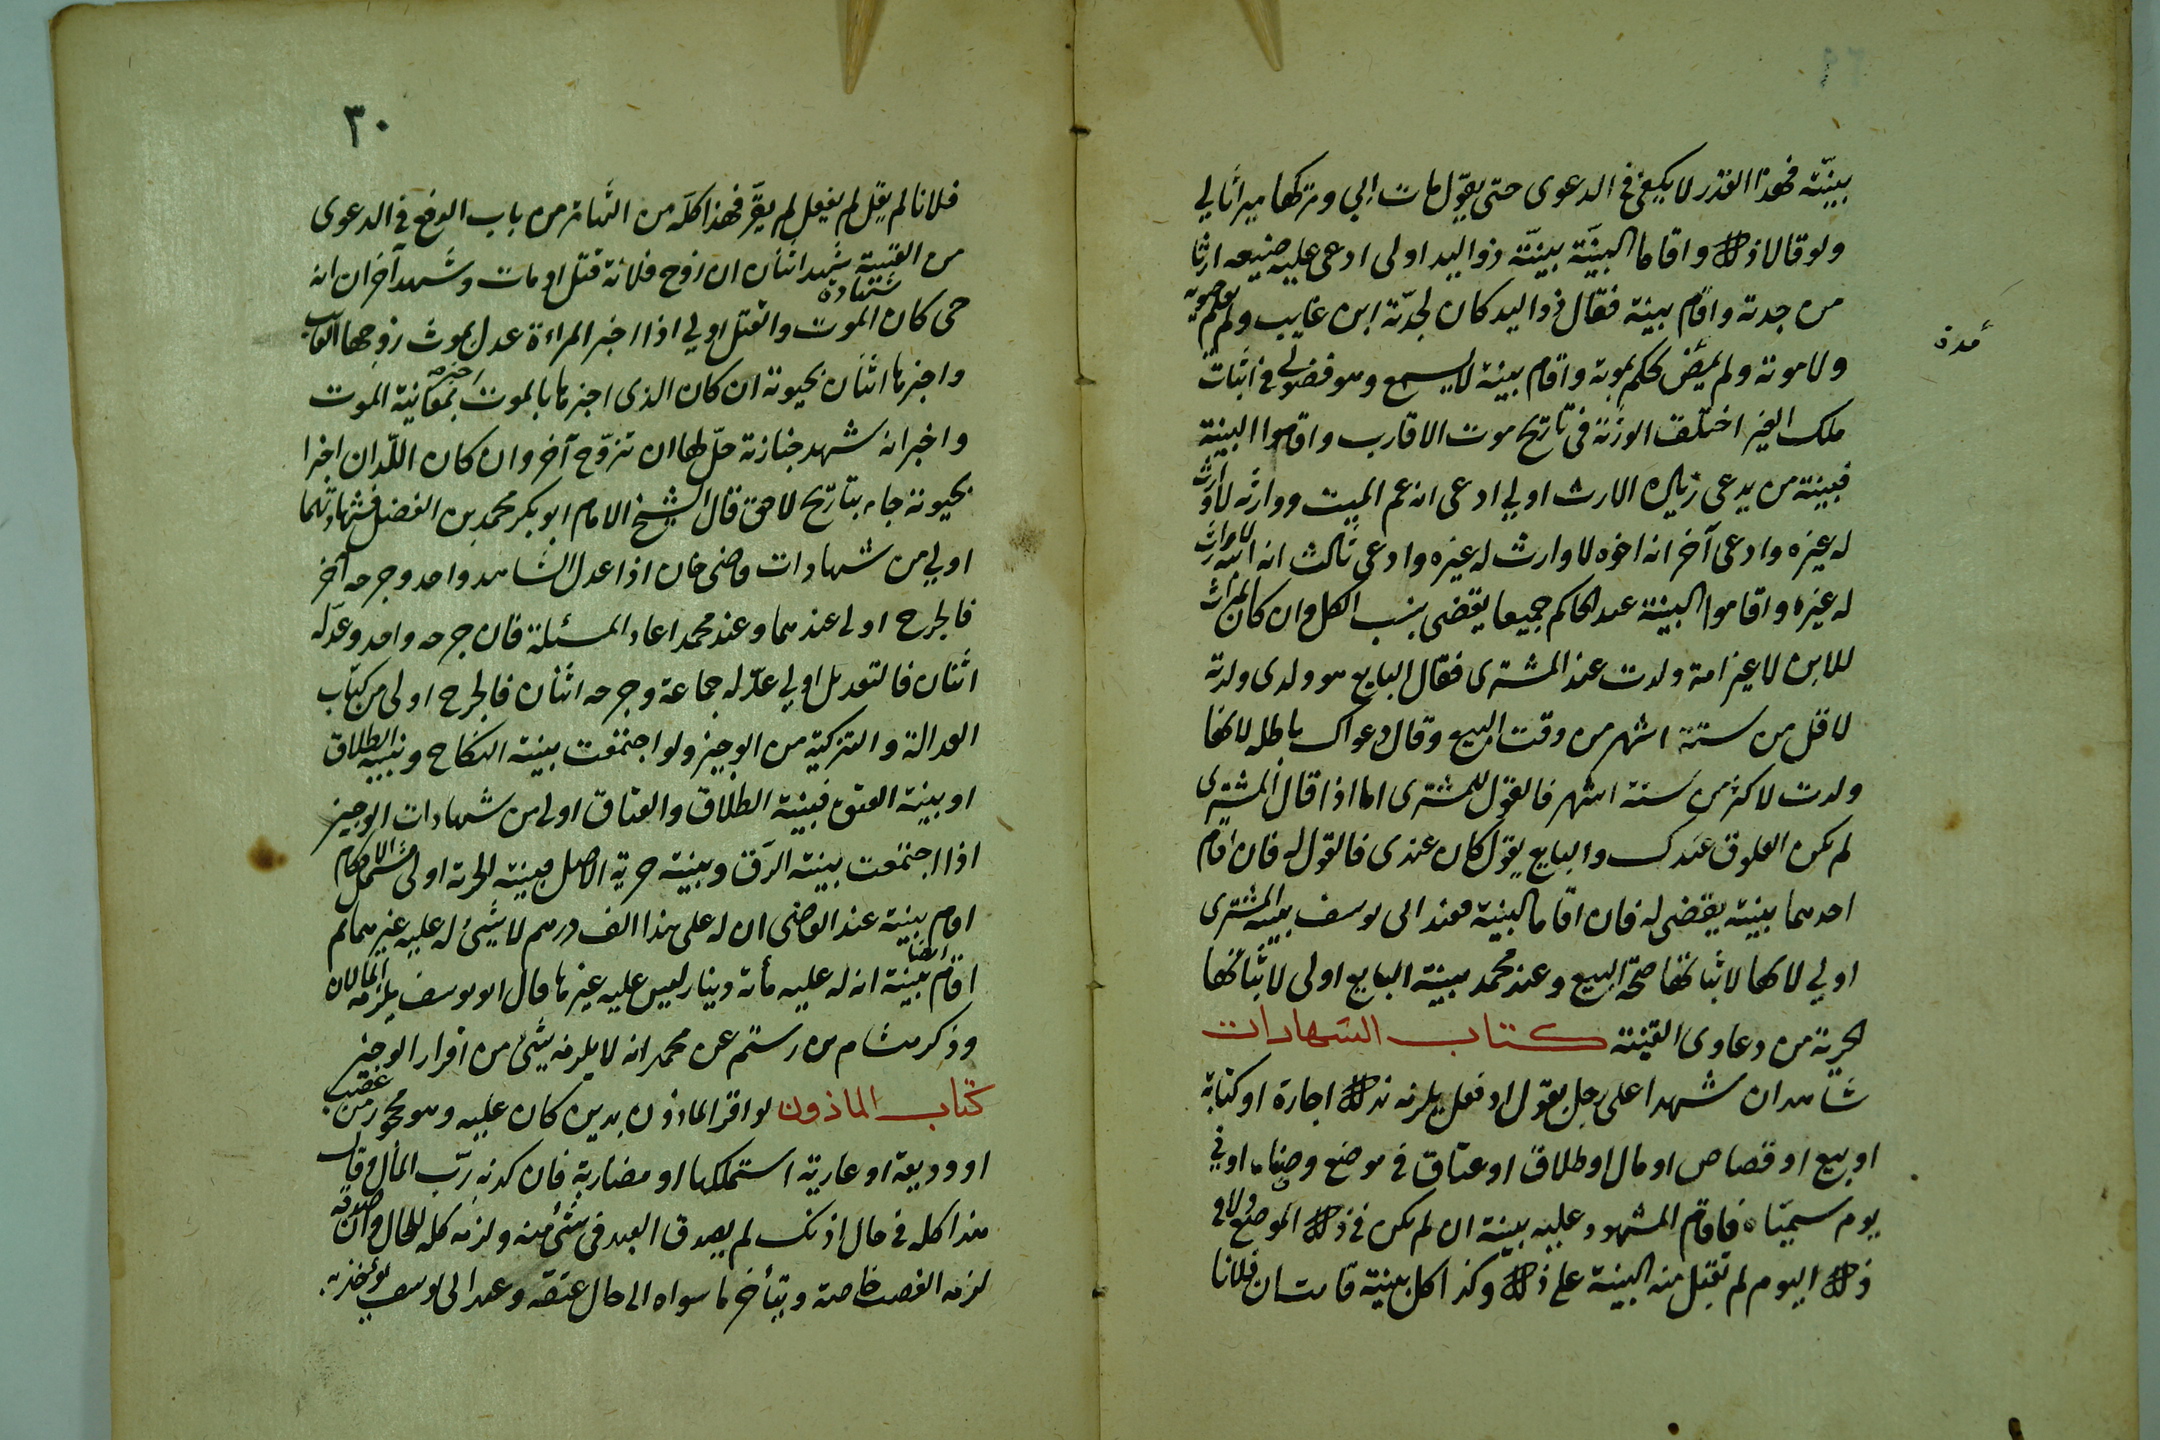 ببينة فهذا القدر لا يكفي في الدعوى حتى يقول مات ابي وتركها ميراثا لي
ولو قالا ذلك واقاما البينة بينة ذو اليد اولى ادعى عليه ضيعه ارثا
من جدته واقام بينة فقال ذو اليد كان لجدته ابن غايب ولم
مدة
ولا موته ولم يمض حكم بموته واقام بينة لا يسمع وهو فضولي في اثبات
ملك الغير اختلف الورثة في تاريخ موت الاقارب واقاموا البينة
فبينة من يدعي زيادة الارث اولي ادعى انه عم الميت ووارثه لا وارث
له غيره وادعى آخر انه اخوه لا وارث له غيره وادعى ثالث انه ابنه لا وارث
له غيره واقاموا البينة عند الحاكم جميعا يقضى بنسب الكل وان كان الميراث
للابن لا غير امة ولدت عند المشترى فقال البايع هو ولدى ولدته
لاقل من ستة اشهر من وقت البيع وقال دعواك باطله لانها
ولدت لاكثر من ستة اشهر فالقول للمشترى اما اذا قال المشترى
لم يكن العلوق عندك والبايع يقول كان عندى فالقول له فان اقام
احدهما بينة يقضى له فان اقاما البينة فعند ابى يوسف بينة المشترى
اولي لانها لاثباتها صحة البيع وعند محمد بينة البايع اولى لاثباتها
الحرية من دعاوى القنية كتاب الشهادات
شاهدان شهدا على رجل بقول او فعل يلزمه بذلك اجارة او كتابة
او بيع او قصاص او مال او طلاق او عتاق في موضع وصفاه او في
يوم سمياه فاقام المشهود عليه بينة ان لم يكن في ذلك الموضع ولا في
ذلك اليوم لم تقبل منه البينة على ذلك وكذا كل بينة قامت ان فلانا
٣٠
فلانا لم يقل لم يفعل لم يقر فهذا كله من التهاتر من باب الدفع في الدعوى
من القنية شهد اثنان ان زوج فلانة قتل او مات وشهد آخران انه
شهادة
حى كان الموت والقتل اولي اذا اخبر المراءة عدل بموت زوجها الغايب
واخبرها اثنان بحيوته ان كان الذى اخبرها بالموت اخبر بمعاينة الموت
واخبر انه شهد جنازته حل لها ان تزوج آخر وان كان اللذان اخبرا
بحيوته جاء بتاريخ لاحق قال الشيخ الامام ابو بكر محمد بن الفضل فشهادتهما
اولي من شهادات قاضى خان اذا عدل الشاهد واحد وجرحه آخر
فالجرح اولى عندهما وعند محمد اعاد المسئلة فان جرحه واحد وعدله
اثنان فالتعديل اولي عدله جماعة وجرحه اثنان فالجرح اولى من كتاب
العدالة والتزكية من الوجيز ولو اجتمعت بينة النكاح وبينة الطلاق
او بينة العتق فبينة الطلاق والعتاق اولى من شهادات الوجيز
اذا اجتمعت بينة الرق وبينة حرية الاصل فبينة الحرية اولى مشتمل الاحكام
اقام بينة عند القاضى ان له على هذا الف درهم لا شئ له عليه غيرهما ثم
اقام ايضا بينة انه له عليه مأة دينار ليس عليه غيرها قال ابو يوسف يلزمه المالان
وذكر هشام بن رستم عن محمد انه لا يلزمه شئ من اقرار الوجيز
كتاب الماذون لو اقر الماذون بدين كان عليه وهو محجور من غصب
او وديعة او عارية استهلكها او مضاربة فان كذبه رب المال وقال
هذا كله في حال اذنك لم يصدق العبد في شئ منه ولزمه كله للحال وان صدقه
لزمه الغصب خاصة ويتأخر ما سواه الى حال عتقه وعند ابى يوسف يؤخذ به